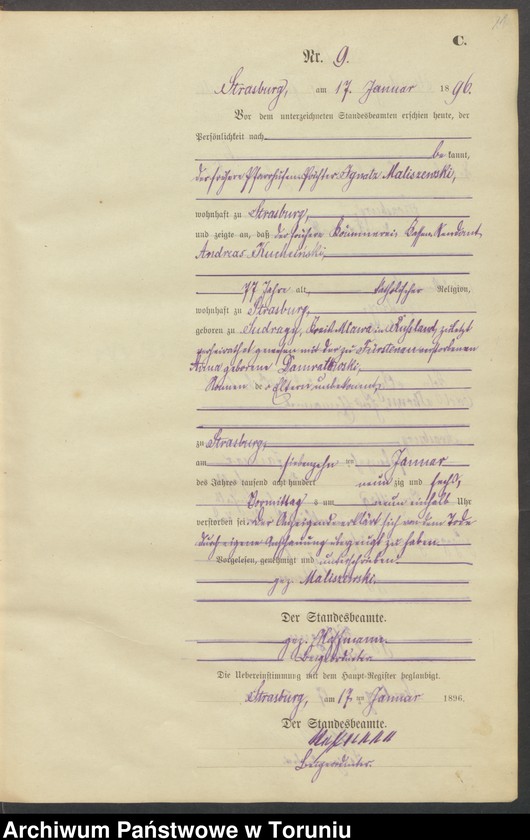 21
C.
Nr. 9.
Strasburg, am 17. Januar 1896.
Vor dem unterzeichneten Standesbeamten erschien heute, der
Persönlichkeit nach
bekannt,
der frühere Pfarrhufen-Pächter Ignatz Maliszewski,
wohnhaft zu Strasburg,
und zeigte an, daß der frühere Kassen-Rendant
Andreas
77 Jahre alt, katholischer Religion,
wohnhaft zu Strasburg,
geboren zu Kreis Mlawa in Rußland, zuletzt
verheirathet gewesen mit der zu verstorbenen
Anna geborene
Namen der Eltern unbekannt,
zu Strasburg,
am siebenzehn ten Januar
des Jahres tausend acht hundert neunzig und sechs,
Vormittags um neun einhalb Uhr
verstorben sei. Der Anzeigende erklärt sich von dem Tode
durch eigene Anschauung überzeugt zu haben.
Vorgelesen, genehmigt und unterschrieben.
gez. Maliszewski.
Der Standesbeamte.
gez. Hoffmann
Die Uebereinstimmung mit dem Haupt-Register beglaubigt.
Strasburg, am 17 ten Januar 1896.
Der Standesbeamte.
Archiwum Państwowe w Toruniu